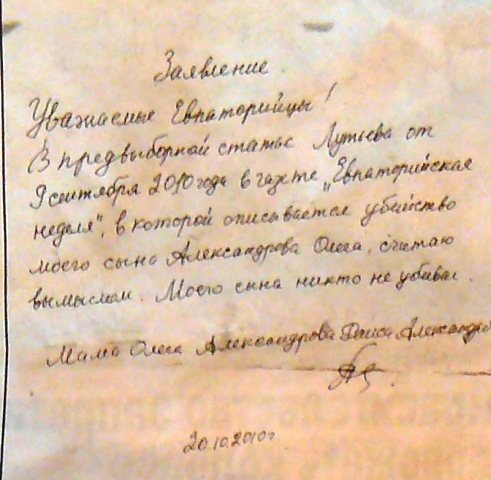 Заявление.
Уважаемые Евпаторийцы!
В предвыборной статье Лутьева от
9 сентября 2010 года в газете „Евпаторийская
неделя", в которой описывается убийство
моего сына Александрова Олега, считаю
вымыслом. Моего сына никто не убивал.
Мама Олега Александрова
20.10.2010г